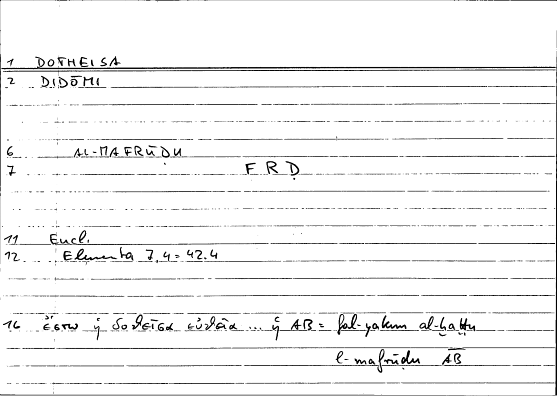 1 DOTHEISA
2 DIDŌMI
6 AL-MAFRŪḌU
7 F R Ḍ
11 Eucl.
12 Elementa 7,4 = 42.4
16 ἔστω ἡ δοθεῖσα εὐθεῖα ... ἡ AB = fal-yakun al-ḫaṭṭu
l-mafrūḍu A͞B͞